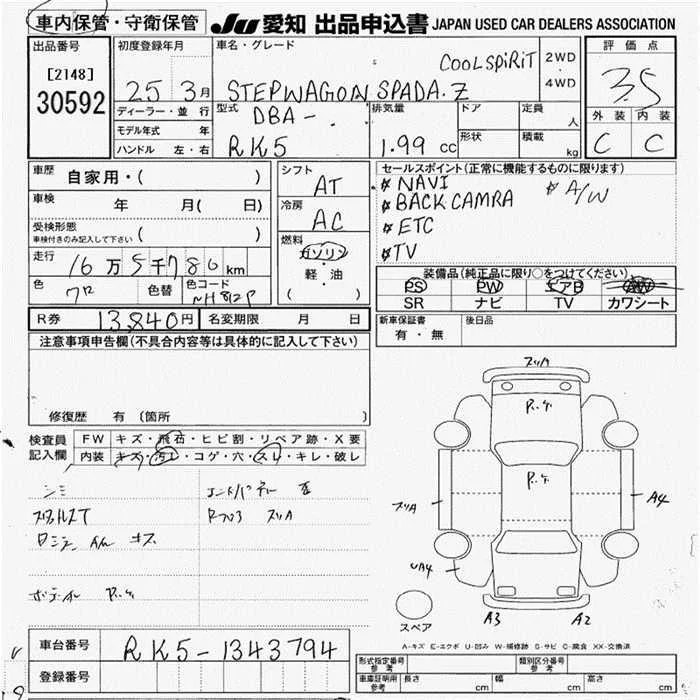 車内保管・守衛保管 JU 愛知 出品申込書 JAPAN USED CAR DEALERS ASSOCIATION
出品番号 初度登録年月 車名・グレード 評価点
[2148] COOLSPiRiT 2WD
30592 25 3月 STEPWAGON SPADA.Z 4WD 3.5
ディーラー・並行 型式 DBA- 排気量 ドア 定員 人 外装 内装
モデル年式 年 形状 積載
ハンドル 左・右 RK5 1.99cc kg C C
車歴 自家用・( ) シフト AT セールスポイント(正常に機能するものに限ります)
NAVI A/W
車検 年 月( 日) 冷房 AC BACK CAMRA
受検形態 ETC
車検付きのみ記入して下さい ( ) 燃料 TV
走行 16万5千786km ガソリン 装備品(純正品に限り○をつけてください)
軽・油 PS PW エアB AW
色 色替 色コード NH812P ( ) SR ナビ TV カワシート
R券 13,840円 名変期限 月 日 新車保証書 後日品
有・無
注意事項申告欄(不具合内容等は具体的に記入して下さい)
スリA
P.ケ
修復歴 有 [箇所
検査員 FW キズ・飛石・ヒビ割・リペア跡・X要
記入欄 内装 キズ・汚レ・コゲ・穴・スレ・キレ・破レ
P.ケ
シミ
スリA A4
スリA
UA4
スペア A3 A2
A-キズ E-エクボ U-凹み W-補修跡 S-サビ C-腐食 XX-交換済
車台番号 RK5-1343794
形式指定番号 参考 類別区分番号 参考
登録番号 車庫証明用 参考 長さ cm 幅 cm 高さ cm